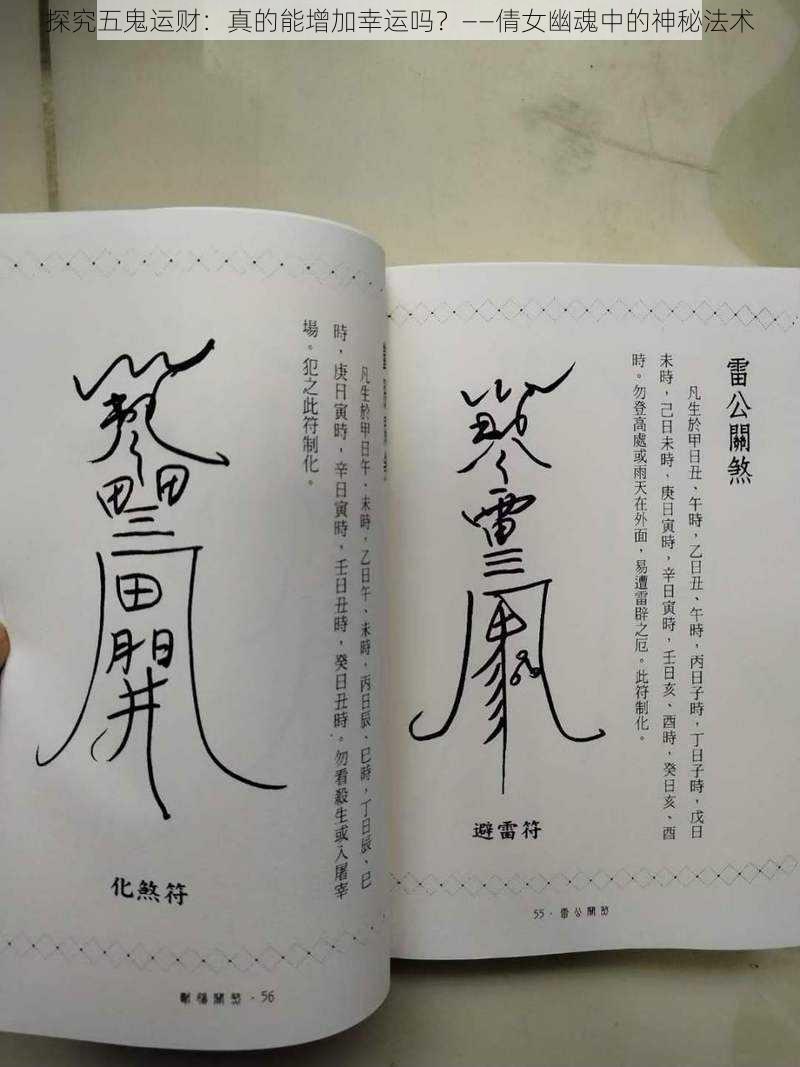 探究五鬼运财：真的能增加幸运吗？——倩女幽魂中的神秘法术
雷公關煞
凡生於甲日丑、午時，乙日丑、午時，丙日子時，丁日子時，戊日
未時，己日未時，庚日寅時，辛日寅時，壬日亥、酉時，癸日亥、酉
時。勿登高處或雨天在外面，易遭雷辟之厄。此符制化。
雷
三
避雷符
55·雷公關煞
凡生於甲日午、未時，乙日午、未時，丙日辰、巳時，丁日辰、巳
時，庚日寅時，辛日寅時，壬日丑時，癸日丑時。勿看殺生或入屠宰
場。犯之此符制化。
田田
三
田
開
化煞符
關煞·56